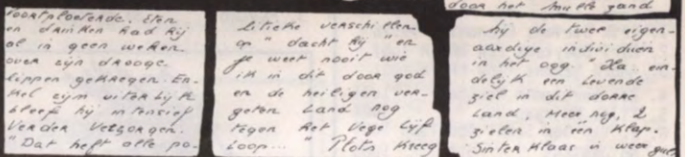 voortploeterde. Eten
en drinken had hij
al in geen weken
over zijn drooge
lippen gekregen. En-
kel zijn uiterlijk
bleef hij intensief
verder verzorgen.
"Dat heft alle po-
litieke verschillen
op" dacht hij "en
je weet nooit wie
ik in dit door god
en de heiligen ver-
geten land nog
tegen het vege lijf
loop..." Plots kreeg
door het mulle zand
hij de twee eigen-
aardige individuen
in het oog. "Ha ein-
delijk een levende
ziel in dit dorre
land, meer nog, 2
zielen in één klap.
Sinterklaas is weer